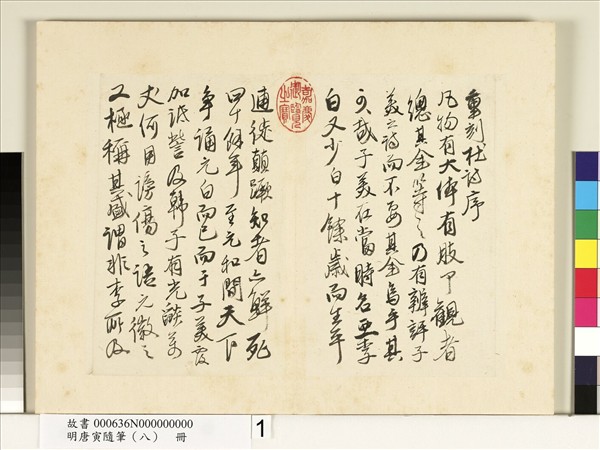 重刻杜詩序
凡物有大體有肢甲觀者
總其全等之乃有辨評子
美之詩而不要其全烏乎其
可哉子美在當時名亞李
白又少白十餘歲而生平
逋徙顛躓知者亦鮮死
四十餘年至元和間天下
爭誦元白而已而于子美反
加詆訾及韓子有光燄萬
丈何用謗傷之語元微之
又極稱其盛謂非李所及
嘉慶御覽之寶
故書 000636N000000000
明唐寅隨筆(八) 冊
1